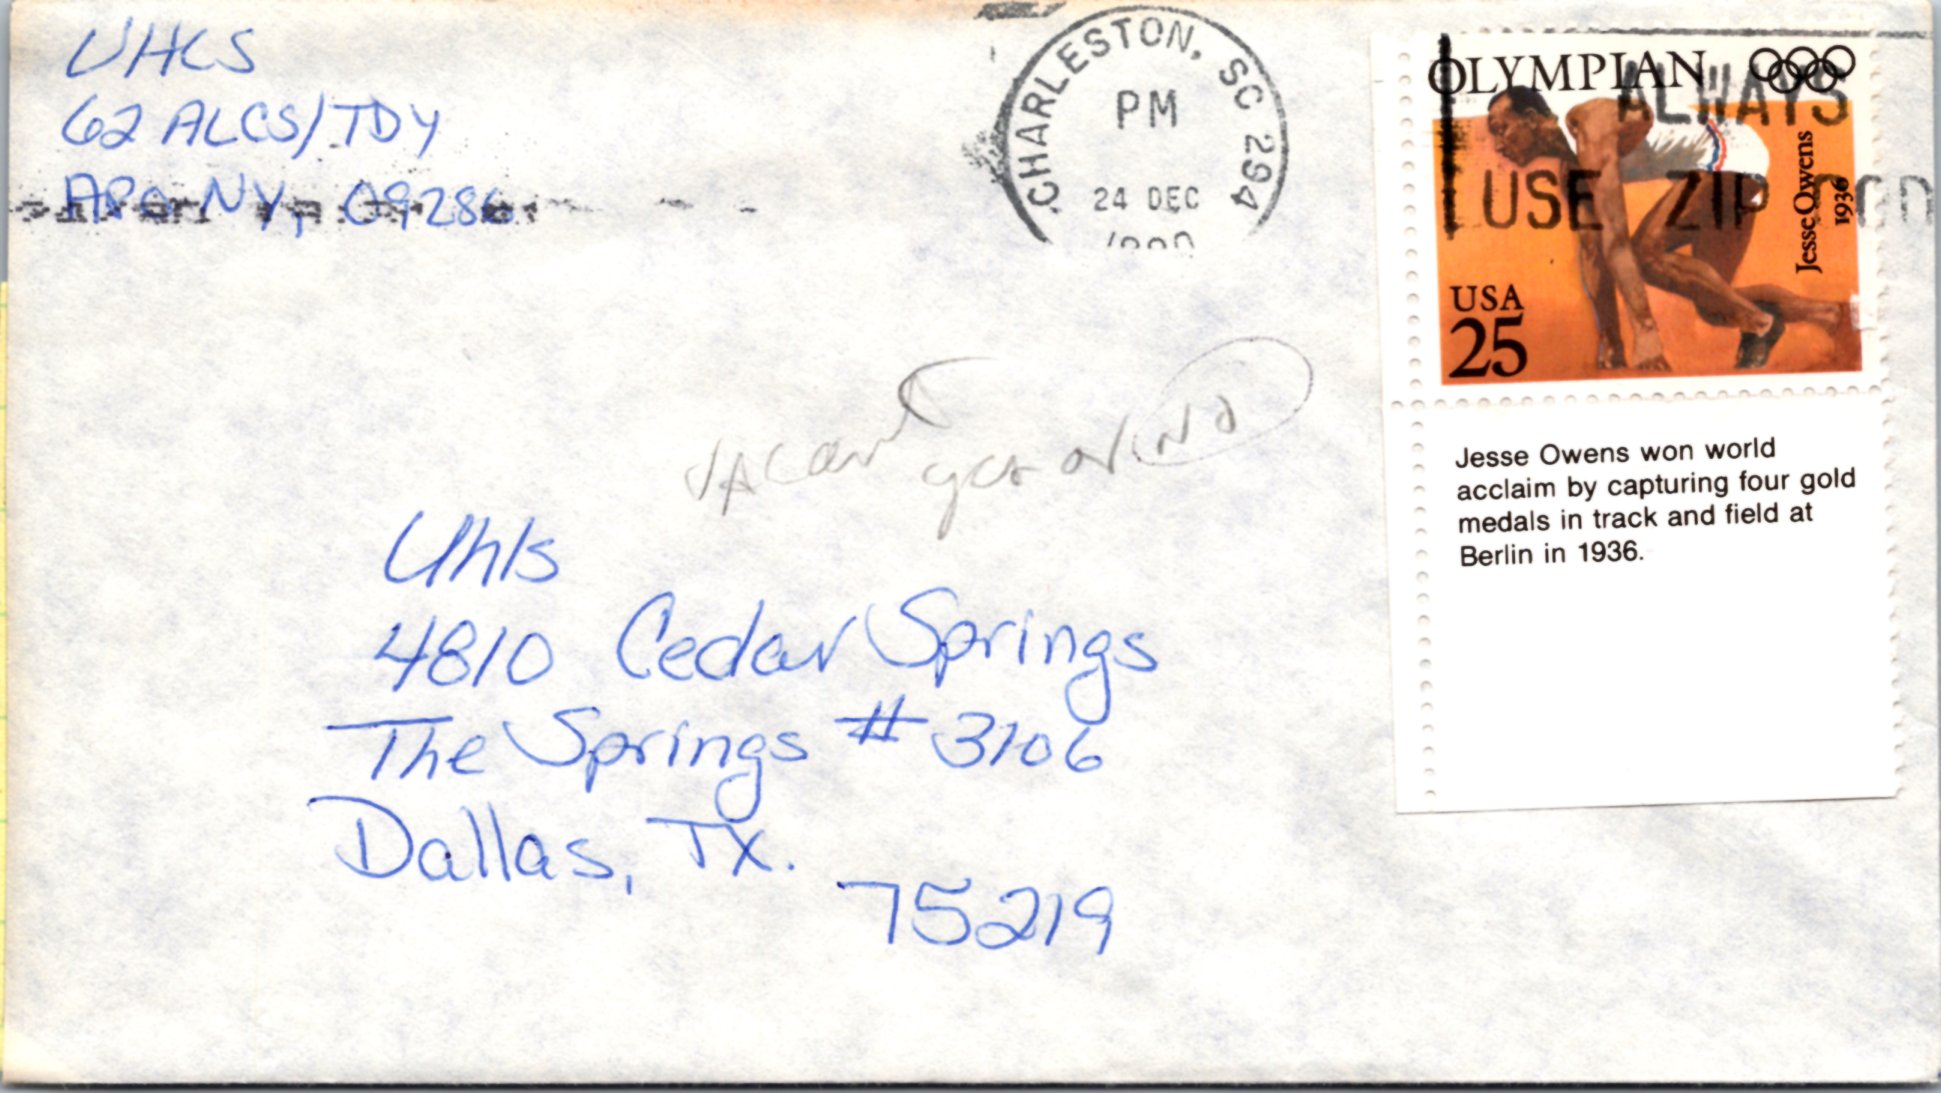 UHLS
62 ALCS/TDY
APO NY, 09286
CHARLESTON, SC 294
PM
24 DEC
1990
OLYMPIAN
ALWAYS
USE ZIP
Jesse Owens
1936
USA
25
Jesse Owens won world
acclaim by capturing four gold
medals in track and field at
Berlin in 1936.
VACANT
Uhls
4810 Cedar Springs
The Springs # 3106
Dallas, TX.
75219